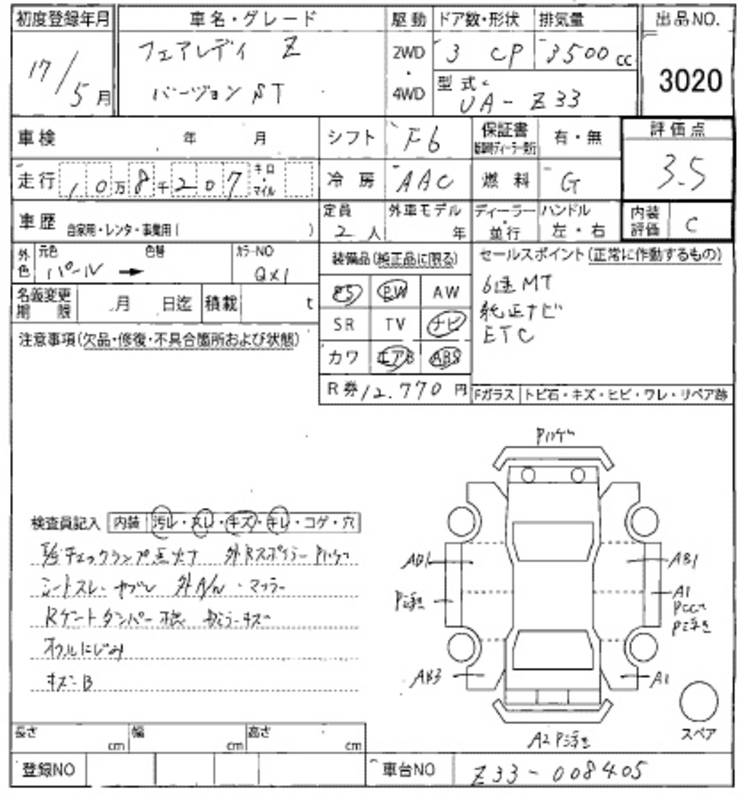 初度登録年月 車名・グレード 駆動 ドア数・形状 排気量 出品NO.
17/5月 フェアレディ Z 2WD・4WD 3 CP 3500cc 3020
バージョン ST 型式 UA-Z33
車検 年 月 シフト F6 保証書 有・無 評価点
走行 10万8千207 キロ・マイル 冷房 AAC 燃料 G 3.5
車歴 自家用・レンタ・事業用( ) 定員 2人 外車モデル 年 ディーラー・並行 ハンドル 左・右 内装評価 C
外色 元色 パール 色替 カラーNO QX1
装備品(純正品に限る) セールスポイント(正常に作動するもの)
名義変更期限 月 日迄 積載 t
PS PW AW 6速MT
SR TV ナビ 純正ナビ
カワ エアB ABS ETC
R券 12.770円
Fガラス トビ石・キズ・ヒビ・ワレ・リペア跡
注意事項(欠品・修復・不具合箇所および状態)
検査員記入 内装 汚レ・スレ・キズ・キレ・コゲ・穴
チェックランプ点灯 外Rスポイラー Pハゲ
シートスレ・ヤブレ 外A/W・マフラー
Rゲートダンパー
オイルにじみ
キズ-B
Pハゲ
AB1
A1
AB3 A1
スペア
長さ cm 幅 cm 高さ cm
登録NO 車台NO Z33-008405